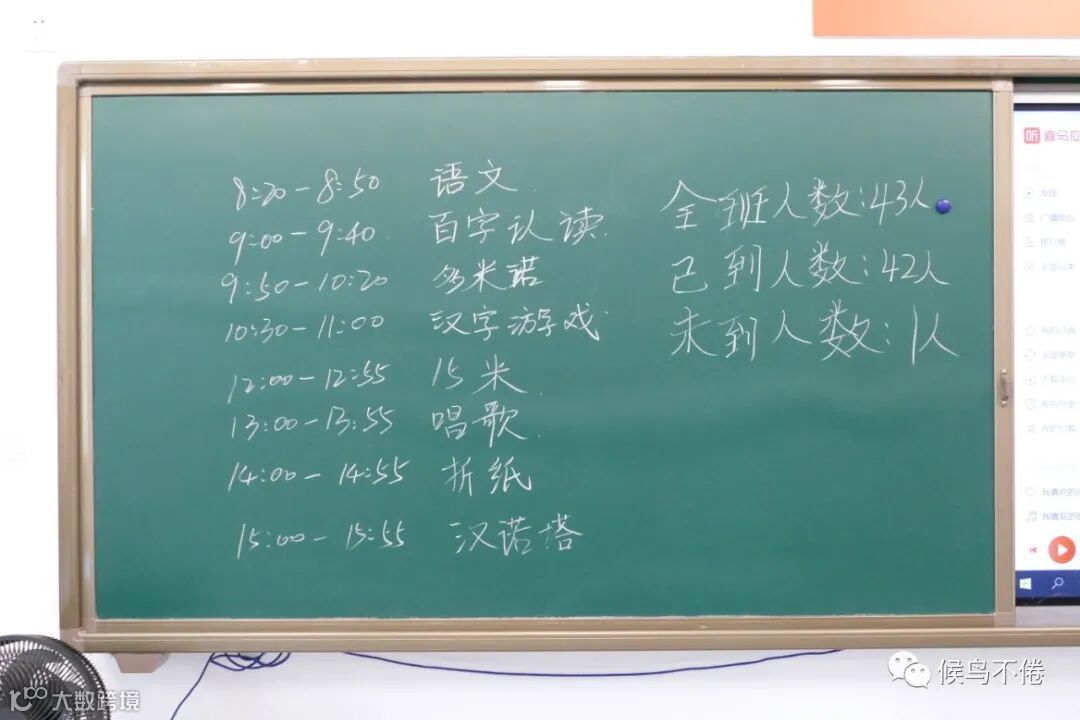 8:20-8:50 语文
9:00-9:40 百字认读
9:50-10:20 多米诺
10:30-11:00 汉字游戏
12:00-12:55 15米
13:00-13:55 唱歌
14:00-14:55 折纸
15:00-15:55 汉诺塔
全班人数:43人
已到人数:42人
未到人数:1人
听 喜马拉
我喜欢的
候鸟不倦
大数跨境